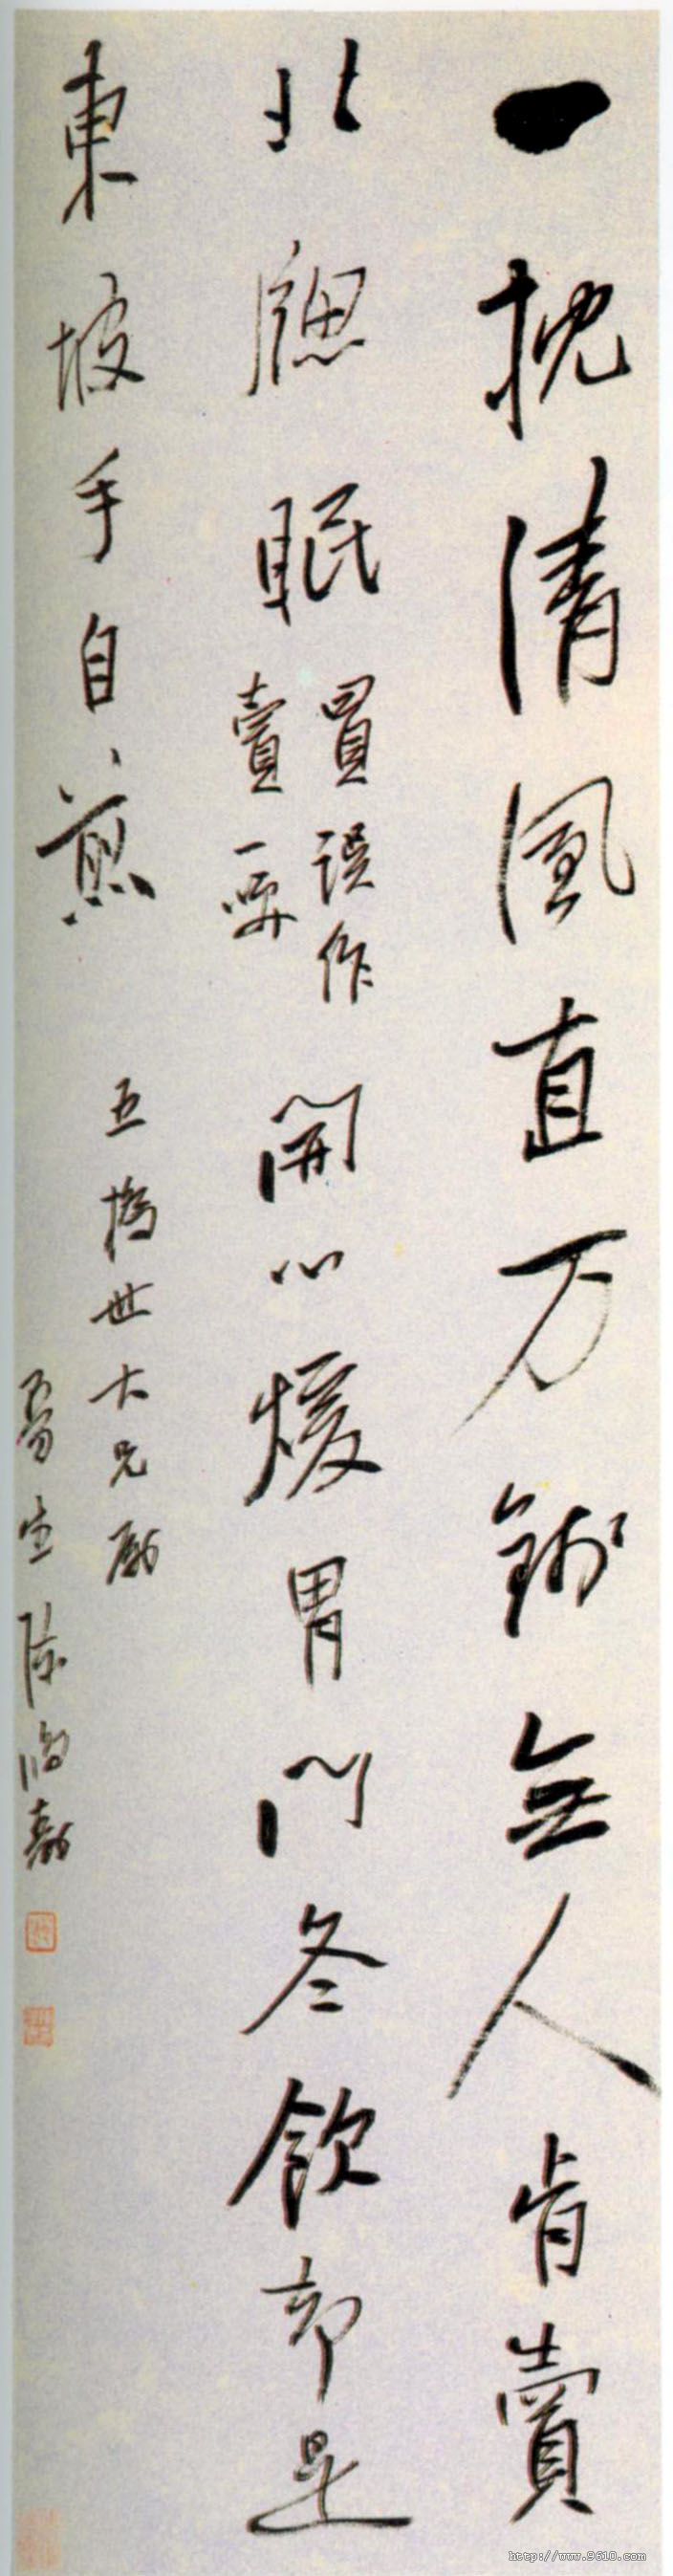 一枕清風直万錢無人肯賣
北牎眠
買誤作
賣一哂
開心煖胃門冬飲知是
東坡手自煎
五橋世大兄属
曼生陳鴻壽
http://www.9610.com